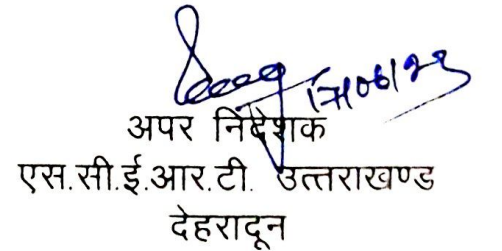 17/06/23
अपर निदेशक
एस.सी.ई.आर.टी. उत्तराखण्ड
देहरादून